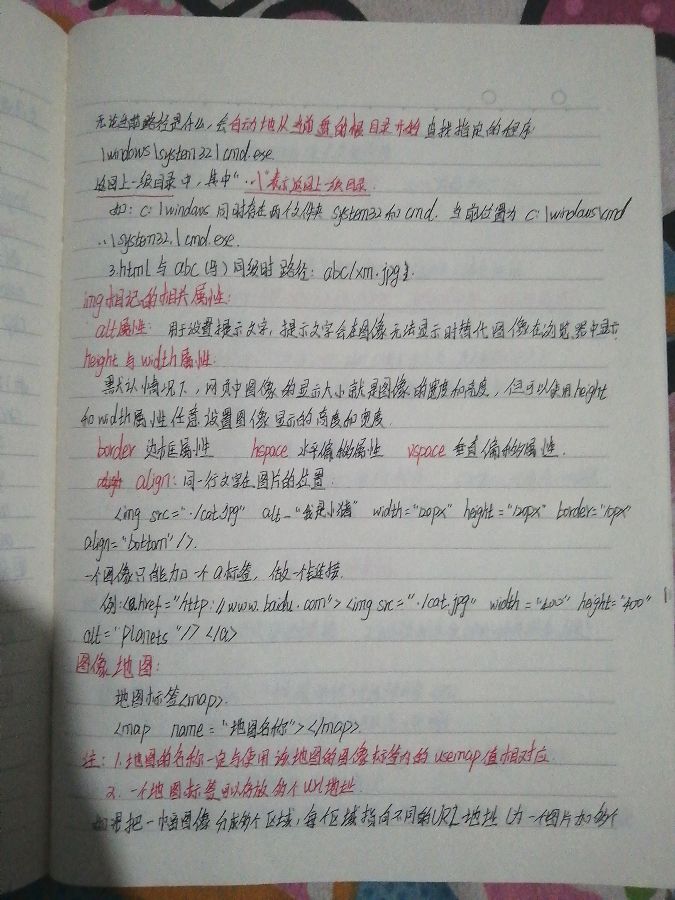 无论当前路径是什么，会自动地从当前盘的根目录开始查找指定的程序
\windows\system32\cmd.exe
返回上一级目录中，其中"..\"表示返回上一级目录.
如：c:\windows 同时存在两个文件夹 system32 和 cmd. 当前位置为 c:\windows\cmd
..\system32.\cmd.exe.
3.html 与 abc(写)同级时 路径：abc/xm.jpg
img标记的相关属性：
alt属性：用于设置提示文字，提示文字会在图像无法显示时替代图像在浏览器中显示
height 与 width 属性：
默认情况下，网页中图像的显示大小就是图像的宽度和高度，但可以使用height
和width属性任意设置图像显示的高度和宽度.
border 边框属性 hspace 水平偏移属性 vspace 垂直偏移属性.
align：同一行文字在图片的位置.
<img src="./cat.jpg" alt="我是小猫" width="120px" height="120px" border="10px"
align="bottom"/>.
一个图像只能加一个a标签，做一个链接.
例：<a href="http://www.baidu.com"><img src="./cat.jpg" width="400" height="400"
alt="Planets"/></a>
图像地图：
地图标签<map>.
<map name="地图名称"></map>.
注：1.地图的名称一定与使用该地图的图像标签内的usemap值相对应.
2.一个地图标签可以存放多个url地址.
如果把一幅图像分成多个区域，每个区域指向不同的URL地址（为一个图片加多个